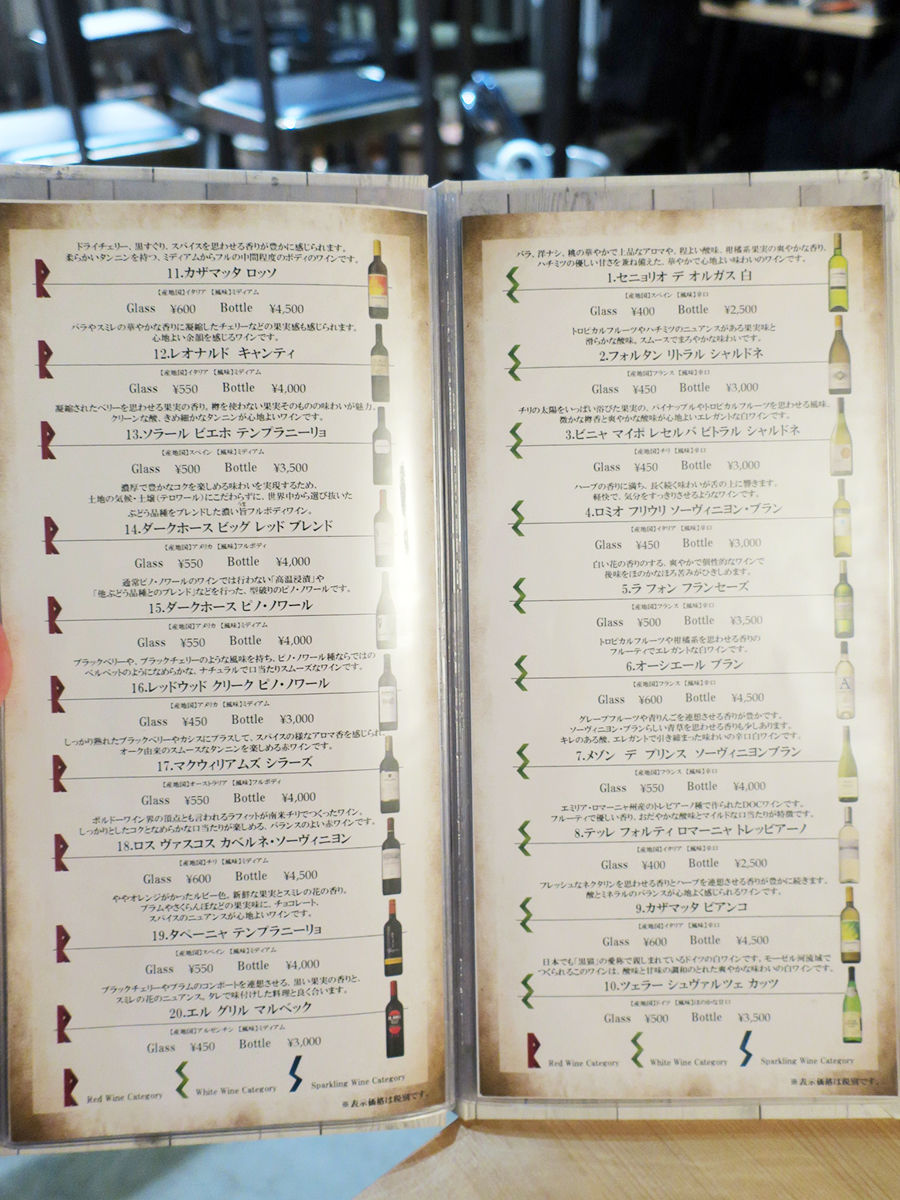 ドライチェリー、黒すぐり、スパイスを思わせる香りが豊かに感じられます。
柔らかいタンニンを持つ、ミディアムからフルの中間程度のボディのワインです。
11.カザマッタ ロッソ
【産地国】イタリア 【風味】ミディアム
Glass ¥600 Bottle ¥4,500
バラやスミレの華やかな香りに凝縮したチェリーなどの果実感も感じられます。
心地よい余韻を感じるワインです。
12.レオナルド キャンティ
【産地国】イタリア 【風味】ミディアム
Glass ¥550 Bottle ¥4,000
凝縮されたベリーを思わせる果実の香り。樽を使わない果実そのものの味わいが魅力。
クリーンな酸、きめ細かなタンニンが心地よいワインです。
13.ソラール ビエホ テンプラニーリョ
【産地国】スペイン 【風味】ミディアム
Glass ¥500 Bottle ¥3,500
濃厚で豊かなコクを楽しめる味わいを実現するため、
土地の気候・土壌(テロワール)にこだわらずに、世界中から選び抜いた
ぶどう品種をブレンドした濃い旨フルボディワイン。
14.ダークホース ビッグ レッド ブレンド
【産地国】アメリカ 【風味】フルボディ
Glass ¥550 Bottle ¥4,000
通常ピノ・ノワールのワインでは行わない「高温浸漬」や
「他ぶどう品種とのブレンド」などを行った、型破りのピノ・ノワールです。
15.ダークホース ピノ・ノワール
【産地国】アメリカ 【風味】ミディアム
Glass ¥550 Bottle ¥4,000
ブラックベリーや、ブラックチェリーのような風味を持ち、ピノ・ノワール種ならではの
ベルベットのようになめらかな、ナチュラルで口当たりスムーズなワインです。
16.レッドウッド クリーク ピノ・ノワール
【産地国】アメリカ 【風味】ミディアム
Glass ¥450 Bottle ¥3,000
しっかり熟れたブラックベリーやカシスにプラスして、スパイスの様なアロマ香を感じられ
オーク由来のスムースなタンニンを楽しめる赤ワインです。
17.マクウィリアムズ シラーズ
【産地国】オーストラリア 【風味】フルボディ
Glass ¥550 Bottle ¥4,000
ボルドーワイン界の頂点とも言われるラフィットが南米チリでつくったワイン。
しっかりとしたコクとなめらかな口当たりが楽しめる、バランスのよい赤ワインです。
18.ロス ヴァスコス カベルネ・ソーヴィニヨン
【産地国】チリ 【風味】ミディアム
Glass ¥600 Bottle ¥4,500
ややオレンジがかったルビー色。新鮮な果実とスミレの花の香り。
プラムやさくらんぼなどの果実味に、チョコレート、
スパイスのニュアンスが心地よいワインです。
19.タベーニャ テンプラニーリョ
【産地国】スペイン 【風味】ミディアム
Glass ¥550 Bottle ¥4,000
ブラックチェリーやプラムのコンポートを連想させる、黒い果実の香りと、
スミレの花のニュアンス。タレで味付けした料理と良く合います。
20.エル グリル マルベック
【産地国】アルゼンチン 【風味】ミディアム
Glass ¥450 Bottle ¥3,000
Red Wine Category White Wine Category Sparkling Wine Category
※表示価格は税別です。
バラ、洋ナシ、桃の華やかで上品なアロマや、程よい酸味、柑橘系果実の爽やかな香り、
ハチミツの優しい甘さを兼ね備えた、華やかで心地よい味わいのワインです。
1.セニョリオ デ オルガス 白
【産地国】スペイン 【風味】辛口
Glass ¥400 Bottle ¥2,500
トロピカルフルーツやハチミツのニュアンスがある果実味と
滑らかな酸味、スムースでまろやかな味わいです。
2.フォルタン リトラル シャルドネ
【産地国】フランス 【風味】辛口
Glass ¥450 Bottle ¥3,000
チリの太陽をいっぱい浴びた果実の、パイナップルやトロピカルフルーツを思わせる風味。
微かな樽香と爽やかな酸味が心地よいエレガントな白ワインです。
3.ビニャ マイポ レセルバ ビトラル シャルドネ
【産地国】チリ 【風味】辛口
Glass ¥450 Bottle ¥3,000
ハーブの香りに満ち、長く続く味わいが舌の上に響きます。
軽快で、気分をすっきりさせるようなワインです。
4.ロミオ フリウリ ソーヴィニヨン・ブラン
【産地国】イタリア 【風味】辛口
Glass ¥450 Bottle ¥3,000
白い花の香りのする、爽やかで個性的なワインで
後味をほのかなほろ苦みがひきしめます。
5.ラ フォン フランセーズ
【産地国】フランス 【風味】辛口
Glass ¥500 Bottle ¥3,500
トロピカルフルーツや柑橘系を思わせる香りの
フルーティでエレガントな白ワインです。
6.オーシエール ブラン
【産地国】フランス 【風味】辛口
Glass ¥600 Bottle ¥4,500
グレープフルーツや青りんごを連想させる香りが豊かです。
ソーヴィニヨン・ブランらしい青草を思わせる香りも少しあります。
キレのある酸、エレガントで引き締まった味わいの辛口白ワインです。
7.メゾン デ プリンス ソーヴィニヨンブラン
【産地国】フランス 【風味】辛口
Glass ¥550 Bottle ¥4,000
エミリア・ロマーニャ州産のトレビアーノ種で作られたDOCワインです。
フルーティで優しい香り、おだやかな酸味とマイルドな口当たりが特徴です。
8.テッレ フォルティ ロマーニャ トレッビアーノ
【産地国】イタリア 【風味】辛口
Glass ¥400 Bottle ¥2,500
フレッシュなネクタリンを思わせる香りとハーブを連想させる香りが豊かに続きます。
酸とミネラルのバランスが心地よく感じられるワインです。
9.カザマッタ ビアンコ
【産地国】イタリア 【風味】辛口
Glass ¥600 Bottle ¥4,500
日本でも「黒猫」の愛称で親しまれているドイツの白ワインです。モーゼル河流域で
つくられるこのワインは、酸味と甘味の調和のとれた爽やかな味わいの白ワインです。
10.ツェラー シュヴァルツェ カッツ
【産地国】ドイツ 【風味】ほのかな甘口
Glass ¥500 Bottle ¥3,500
Red Wine Category White Wine Category Sparkling Wine Category
※表示価格は税別です。